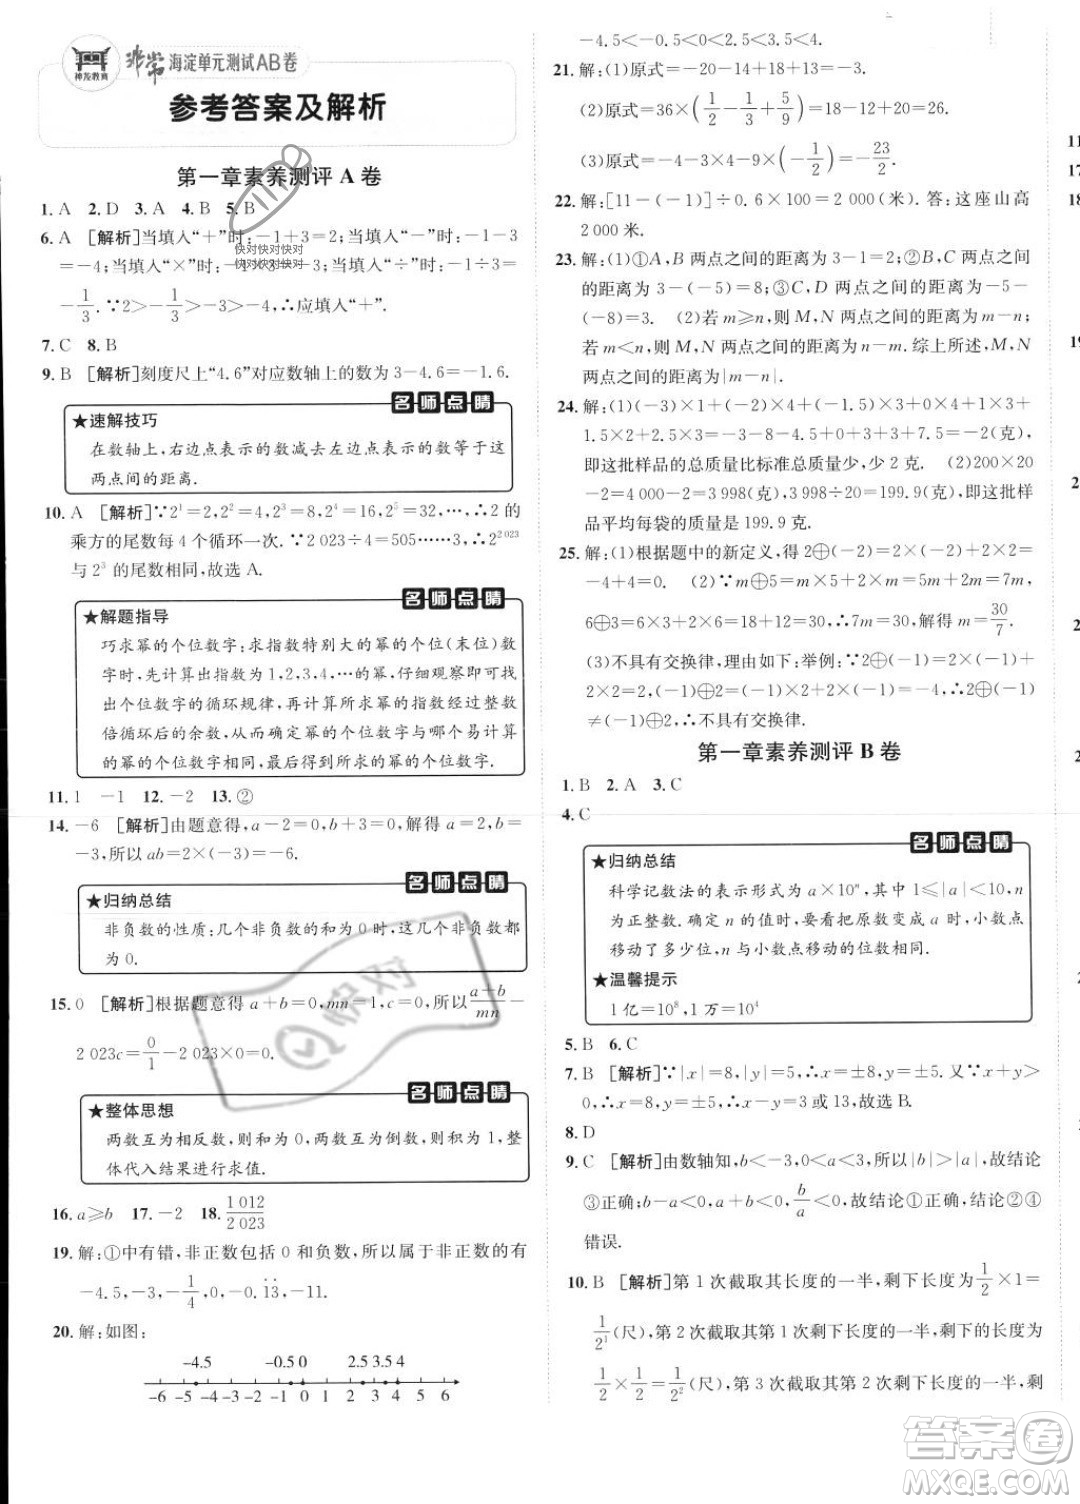 神龙教育
非常 海淀单元测试AB卷
参考答案及解析
第一章素养测评 A 卷
1. A 2. D 3. A 4. B 5. B
6. A [解析]当填入“+”时:-1+3=2;当填入“-”时:-1-3
=-4;当填入“×”时:-1×3=-3;当填入“÷”时:-1÷3=
-1/3.∵2>-1/3>-3>-4,∴应填入“+”.
快对快对快对
快对快对快对
7. C 8. B
9. B [解析]刻度尺上“4.6”对应数轴上的数为 3-4.6=-1.6.
名师点睛
★速解技巧
在数轴上,右边点表示的数减去左边点表示的数等于这
两点间的距离.
10. A [解析]∵2¹=2,2²=4,2³=8,2⁴=16,2⁵=32,…,∴2 的
乘方的尾数每 4 个循环一次.∵2 023÷4=505……3,∴2²⁰²³
与 2³ 的尾数相同,故选 A.
名师点睛
★解题指导
巧求幂的个位数字:求指数特别大的幂的个位(末位)数
字时,先计算出指数为1,2,3,4,…的幂,仔细观察即可找
出个位数字的循环规律,再计算所求幂的指数除以每次
循环后的余数,确定幂的个位数字与哪个幂的个位数字
的幂的个位数字相同即可.
11. 1 -1 12. -2 13. ②
14. -6 [解析]由题意得,a-2=0,b+3=0,解得 a=2,b=
-3,所以 ab=2×(-3)=-6.
名师点睛
★归纳总结
非负数的性质:几个非负数的和为0时,这几个非负数都
为0.
15. 0 [解析]根据题意得 a+b=0,mn=1,c=0,所以(a+b)/mn-
2 023c=0/1-2 023×0=0.
名师点睛
★整体思想
两数互为相反数,则和为0,两数互为倒数,则积为1,整
体代入结果进行求值.
16. a≥b 17. -2 18. 1 012/2 023
19. 解:①中有错,非正数包括 0 和负数,所以属于非正数的有
-4.5,-3,-2,-1/4,0,-0.1̇3̇,-11.
20. 解:如图:
-4.5 -0.5 0 2.5 3.5 4
-6 -5 -4 -3 -2 -1 0 1 2 3 4 5 6
-4.5<-0.5<0<2.5<3.5<4.
21. 解:(1)原式=-20-14+18+13=-3.
(2)原式=36×(1/2-1/3+5/9)=18-12+20=26.
(3)原式=-4-3×4-9×(-1/2)=-23/2.
22. 解:[11-(-1)]÷0.6×100=2 000(米).答:这座山高
2 000米.
23. 解:(1)①A,B 两点之间的距离为 3-1=2;②B,C 两点之
间的距离为 3-(-5)=8;③C,D 两点之间的距离为-5-
(-8)=3. (2)若 m≥n,则M,N 两点之间的距离为 m-n;
若 m<n,则M,N 两点之间的距离为 n-m.综上所述,M,N
两点之间的距离为|m-n|.
24. 解:(1)(-3)×1+(-2)×4+(-1.5)×3+0×4+1×3+
1.5×2+2.5×3=-3-8-4.5+0+3+3+7.5=-2(克),
即这批样品的总质量比标准总质量少,少 2 克. (2)200×20
-2=4 000-2=3 998(克),3 998÷20=199.9(克),即这批样
品平均每袋的质量是 199.9 克.
25. 解:(1)根据题中的新定义,得 2⊕(-2)=2×(-2)+2×2=
-4+4=0. (2)∵m⊕5=m×5+2m=5m+2m=7m,
6⊕3=6×3+2×6=18+12=30,∴7m=30,解得 m=30/7.
(3)不具有交换律,理由如下:举例:∵2⊕(-1)=2×(-1)+
2×2=2,(-1)⊕2=(-1)×2+2×(-1)=-4,∴2⊕(-1)
≠(-1)⊕2,∴不具有交换律.
第一章素养测评 B 卷
1. B 2. A 3. C
4. C
名师点睛
★归纳总结
科学记数法的表示形式为 a×10ⁿ,其中 1≤|a|<10,n
为正整数.确定 n 的值时,要看把原数变成 a 时,小数点
移动了多少位,n与小数点移动的位数相同.
★温馨提示
1亿=10⁸,1万=10⁴
5. B 6. C
7. B [解析]∵|x|=8,|y|=5,∴x=±8,y=±5.又∵x+y>
0,∴x=8,y=±5,∴x-y=3 或13,故选 B.
8. D
9. C [解析]由数轴知,b<-3,0<a<3,所以|b|>|a|,故结论
③正确;b-a<0,a+b<0,b/a<0,故结论①正确,结论②④
错误.
10. B [解析]第 1 次截取其长度的一半,剩下长度为1/2×1=
1/2¹(尺),第 2 次截取其第 1 次剩下长度的一半,剩下长度为
1/2×1/2=1/4=1/2²(尺),第 3 次截取其第 2 次剩下长度的一半,剩
答案圈
MXQE.COM